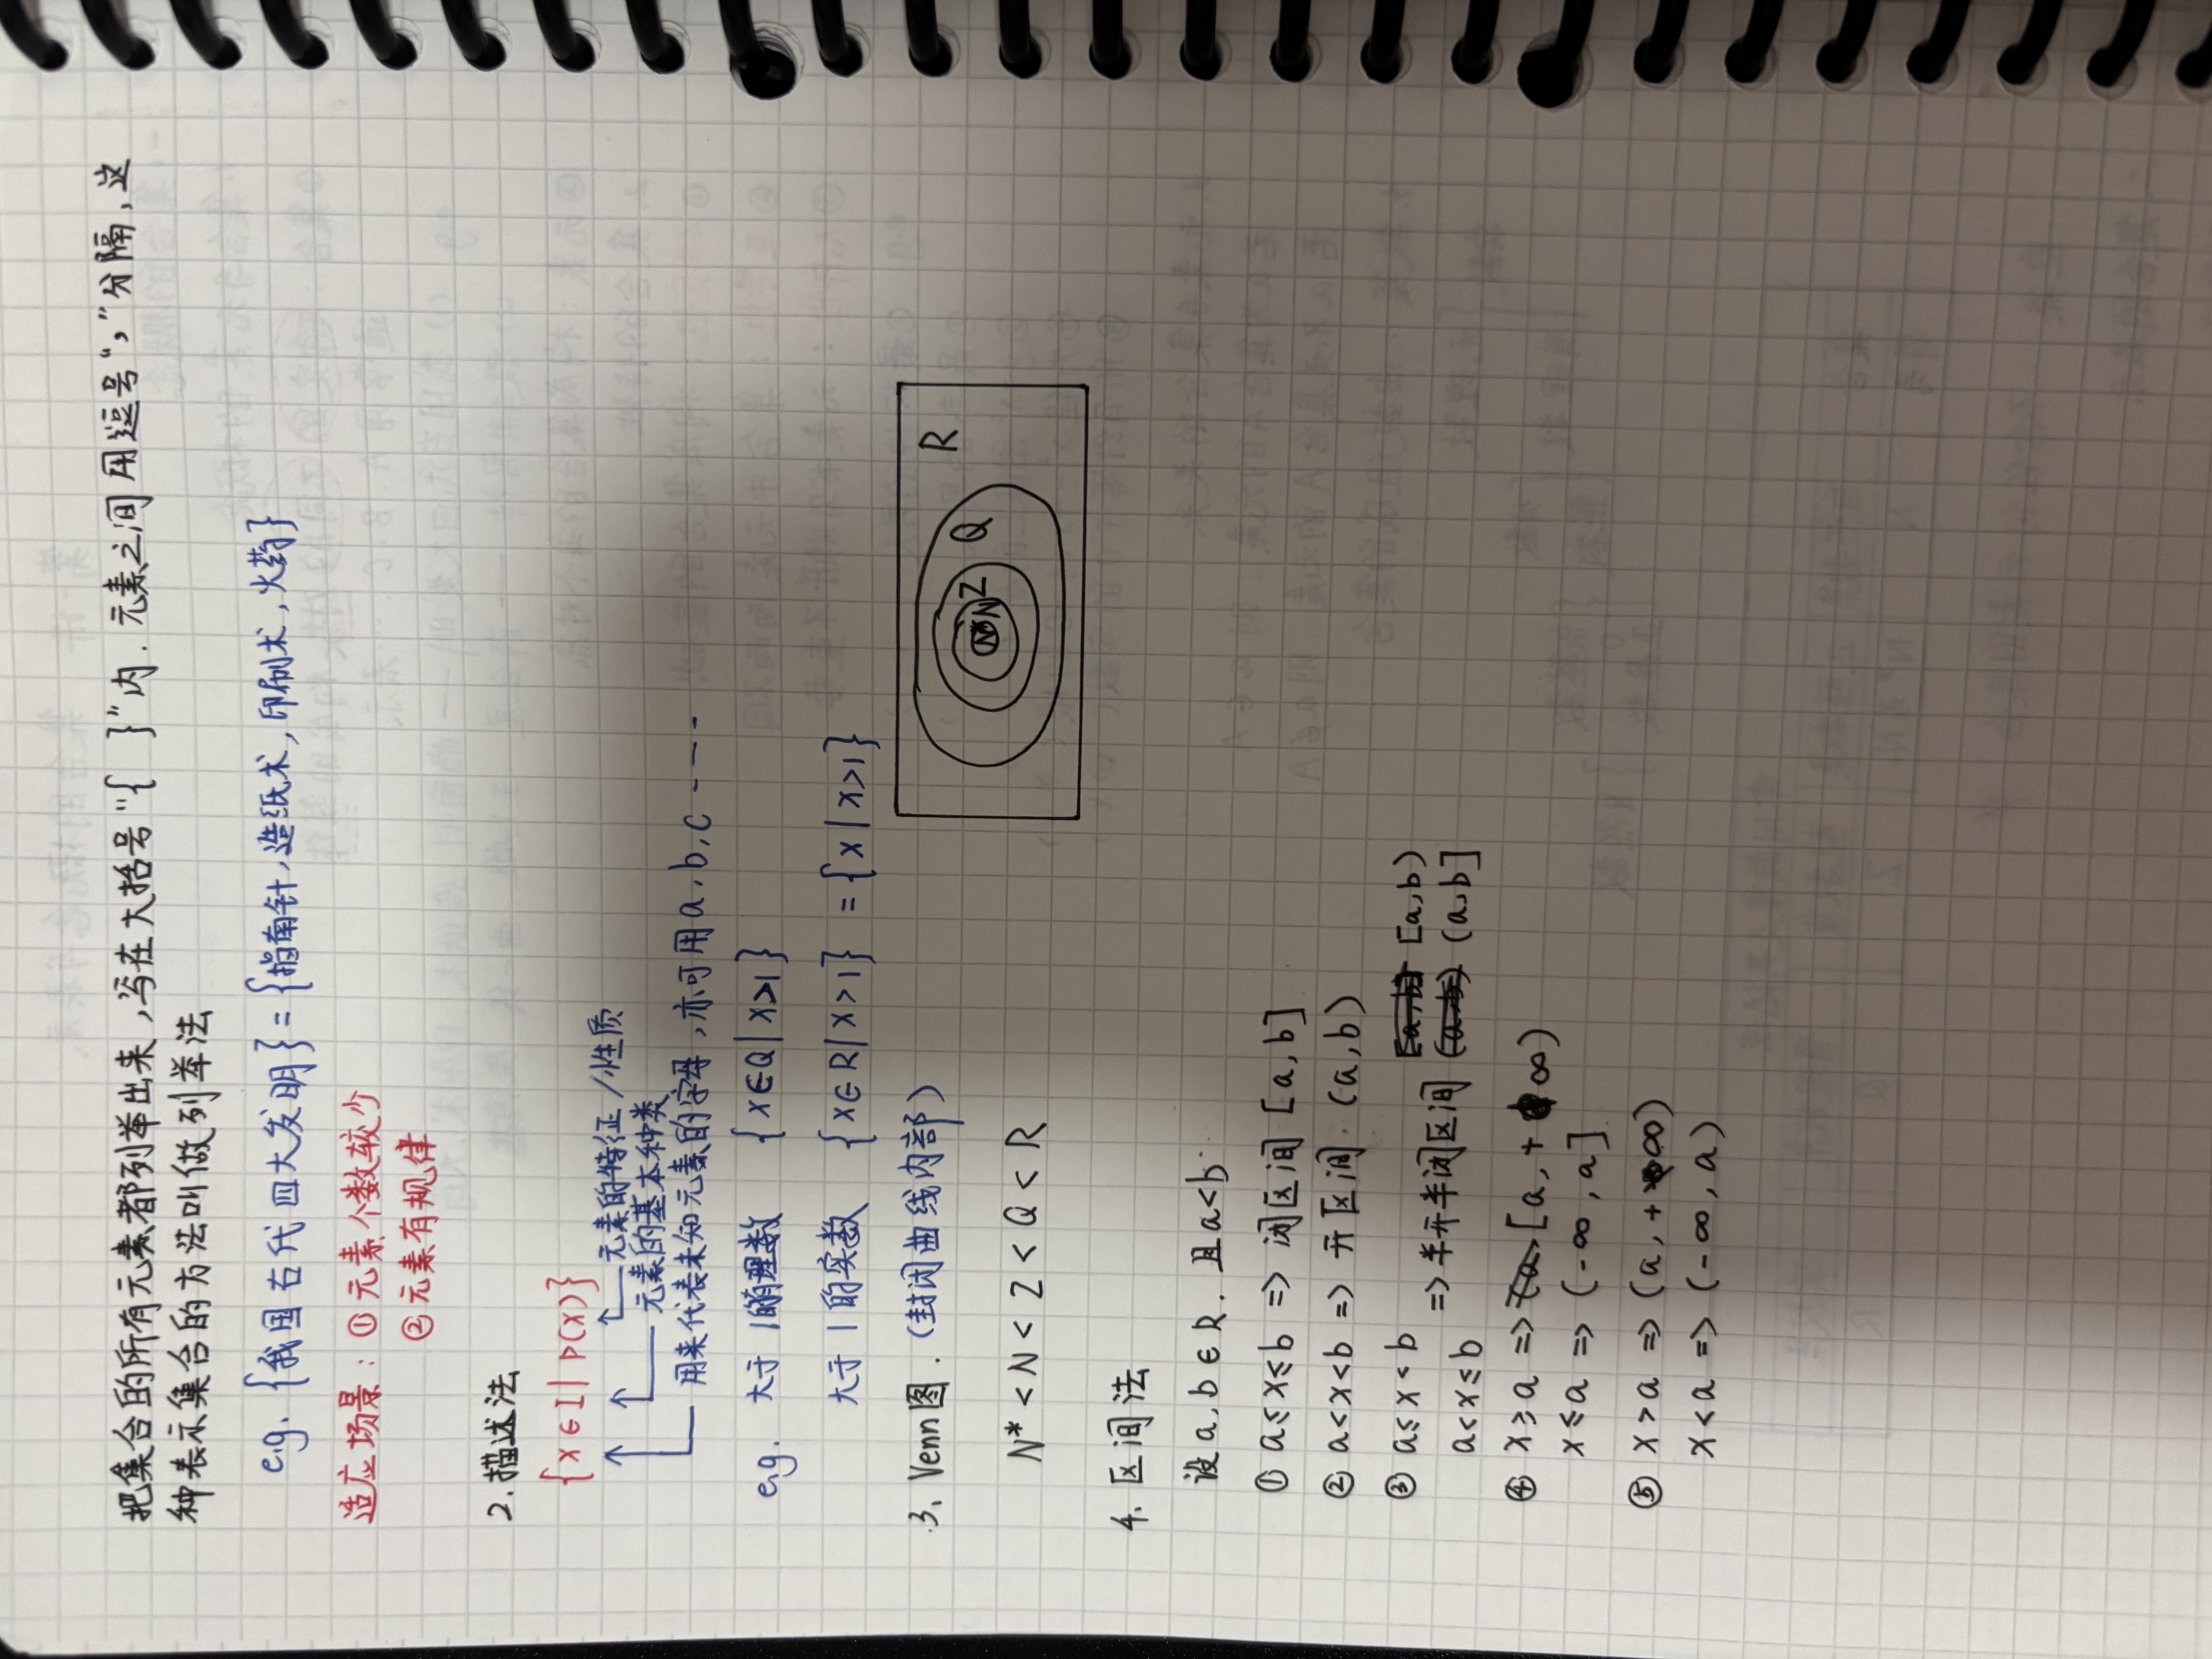 把集合的所有元素都列举出来,写在大括号"{ }"内.元素之间用逗号","分隔,这
种表示集合的方法叫做列举法
e.g. {我国古代四大发明}={指南针,造纸术,印刷术,火药}
适应场景:①元素个数较少
②元素有规律
2.描述法
{x∈I|P(x)}
元素的特征/性质
元素的基本种类
用来代表未知元素的字母,亦可用a,b,c----
e.g. 大于1的有理数 {x∈Q|x>1}
大于1的实数 {x∈R|x>1}={x|x>1}
3、Venn图.(封闭曲线内部)
N*<N<Z<Q<R
N* N Z Q R
4.区间法
设a,b∈R.且a<b.
①a≤x≤b=>闭区间[a,b]
②a<x<b=>开区间.(a,b)
③a≤x<b [a,b)
=>半开半闭区间
a<x≤b (a,b]
④x≥a=>[a,+∞)
x≤a=>(-∞,a]
⑤x>a=>(a,+∞)
x<a=>(-∞,a)